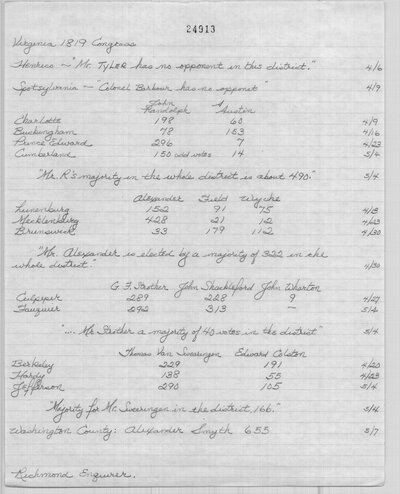 24913
Virginia 1819 Congress
Henrico - "Mr. TYLER has no opponent in this district." 4/6
Spotsylvania - "Colonel Barbour has no opponent 4/9
John Randolph A Austin
Charlotte 198 60 4/9
Buckingham 78 153 4/16
Prince Edward 296 7 4/23
Cumberland 150 odd votes 14 5/4
"Mr. R's majority in the whole district is about 490." 5/4
Alexander Field Wyche
Lunenburg 152 91 75 4/13
Mecklenburg 428 21 12 4/23
Brunswick 33 179 112 4/30
"Mr. Alexander is elected by a majority of 322 in the
whole district." 4/30
G. F. Strother John Shackleford John Wharton
Culpeper 289 228 9 4/27
Fauquier 292 313 — 5/4
".... Mr. Strother a majority of 40 votes in the district" 5/4
Thomas Van Swearingen Edward Colston
Berkeley 229 191 4/20
Hardy 138 55 4/23
Jefferson 290 105 5/4
"Majority for Mr. Swearingen in the district, 166." 5/4
Washington County: Alexander Smyth 655 5/7
Richmond Enquirer.